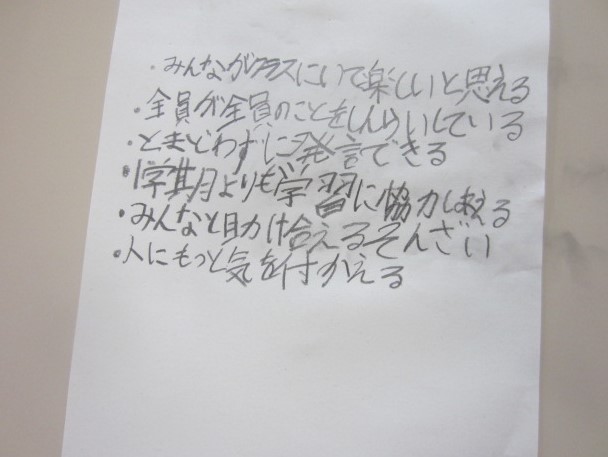 ・みんながクラスにいて楽しいと思える
・全員が全員のことをしんらいしている
・とまどわずに発言できる
・1学期よりも学習に協力し合える
・みんなと助け合えるそんざい
・人にもっと気を付かえる